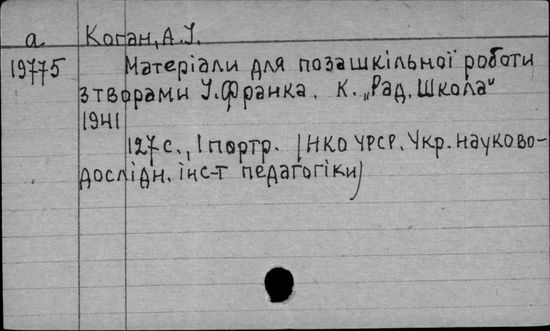 а. Коган, А.І.
19775 Матеріали для позашкільної роботи
з творами І. Франка. К. „Рад. Школа"
1941
127 с., 1 портр. (НКО УРСР. Укр. науково-
дослідн. інс-т педагогіки)